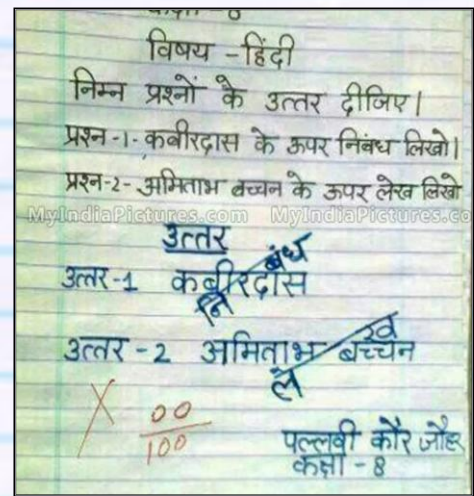 कक्षा - 8
विषय - हिंदी
निम्न प्रश्नों के उत्तर दीजिए।
प्रश्न-1- कबीरदास के ऊपर निबंध लिखो।
प्रश्न-2- अमिताभ बच्चन के ऊपर लेख लिखो
MyIndiaPictures.com MyIndiaPictures.co
उत्तर
उत्तर-1 कबीरदास
निबंध
उत्तर - 2 अमिताभ बच्चन
लेख
X 00
100
पल्लवी कौर जौहर
कक्षा - 8